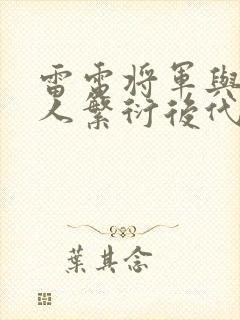 雷雷將軍與
人繁衍後代
葉其念